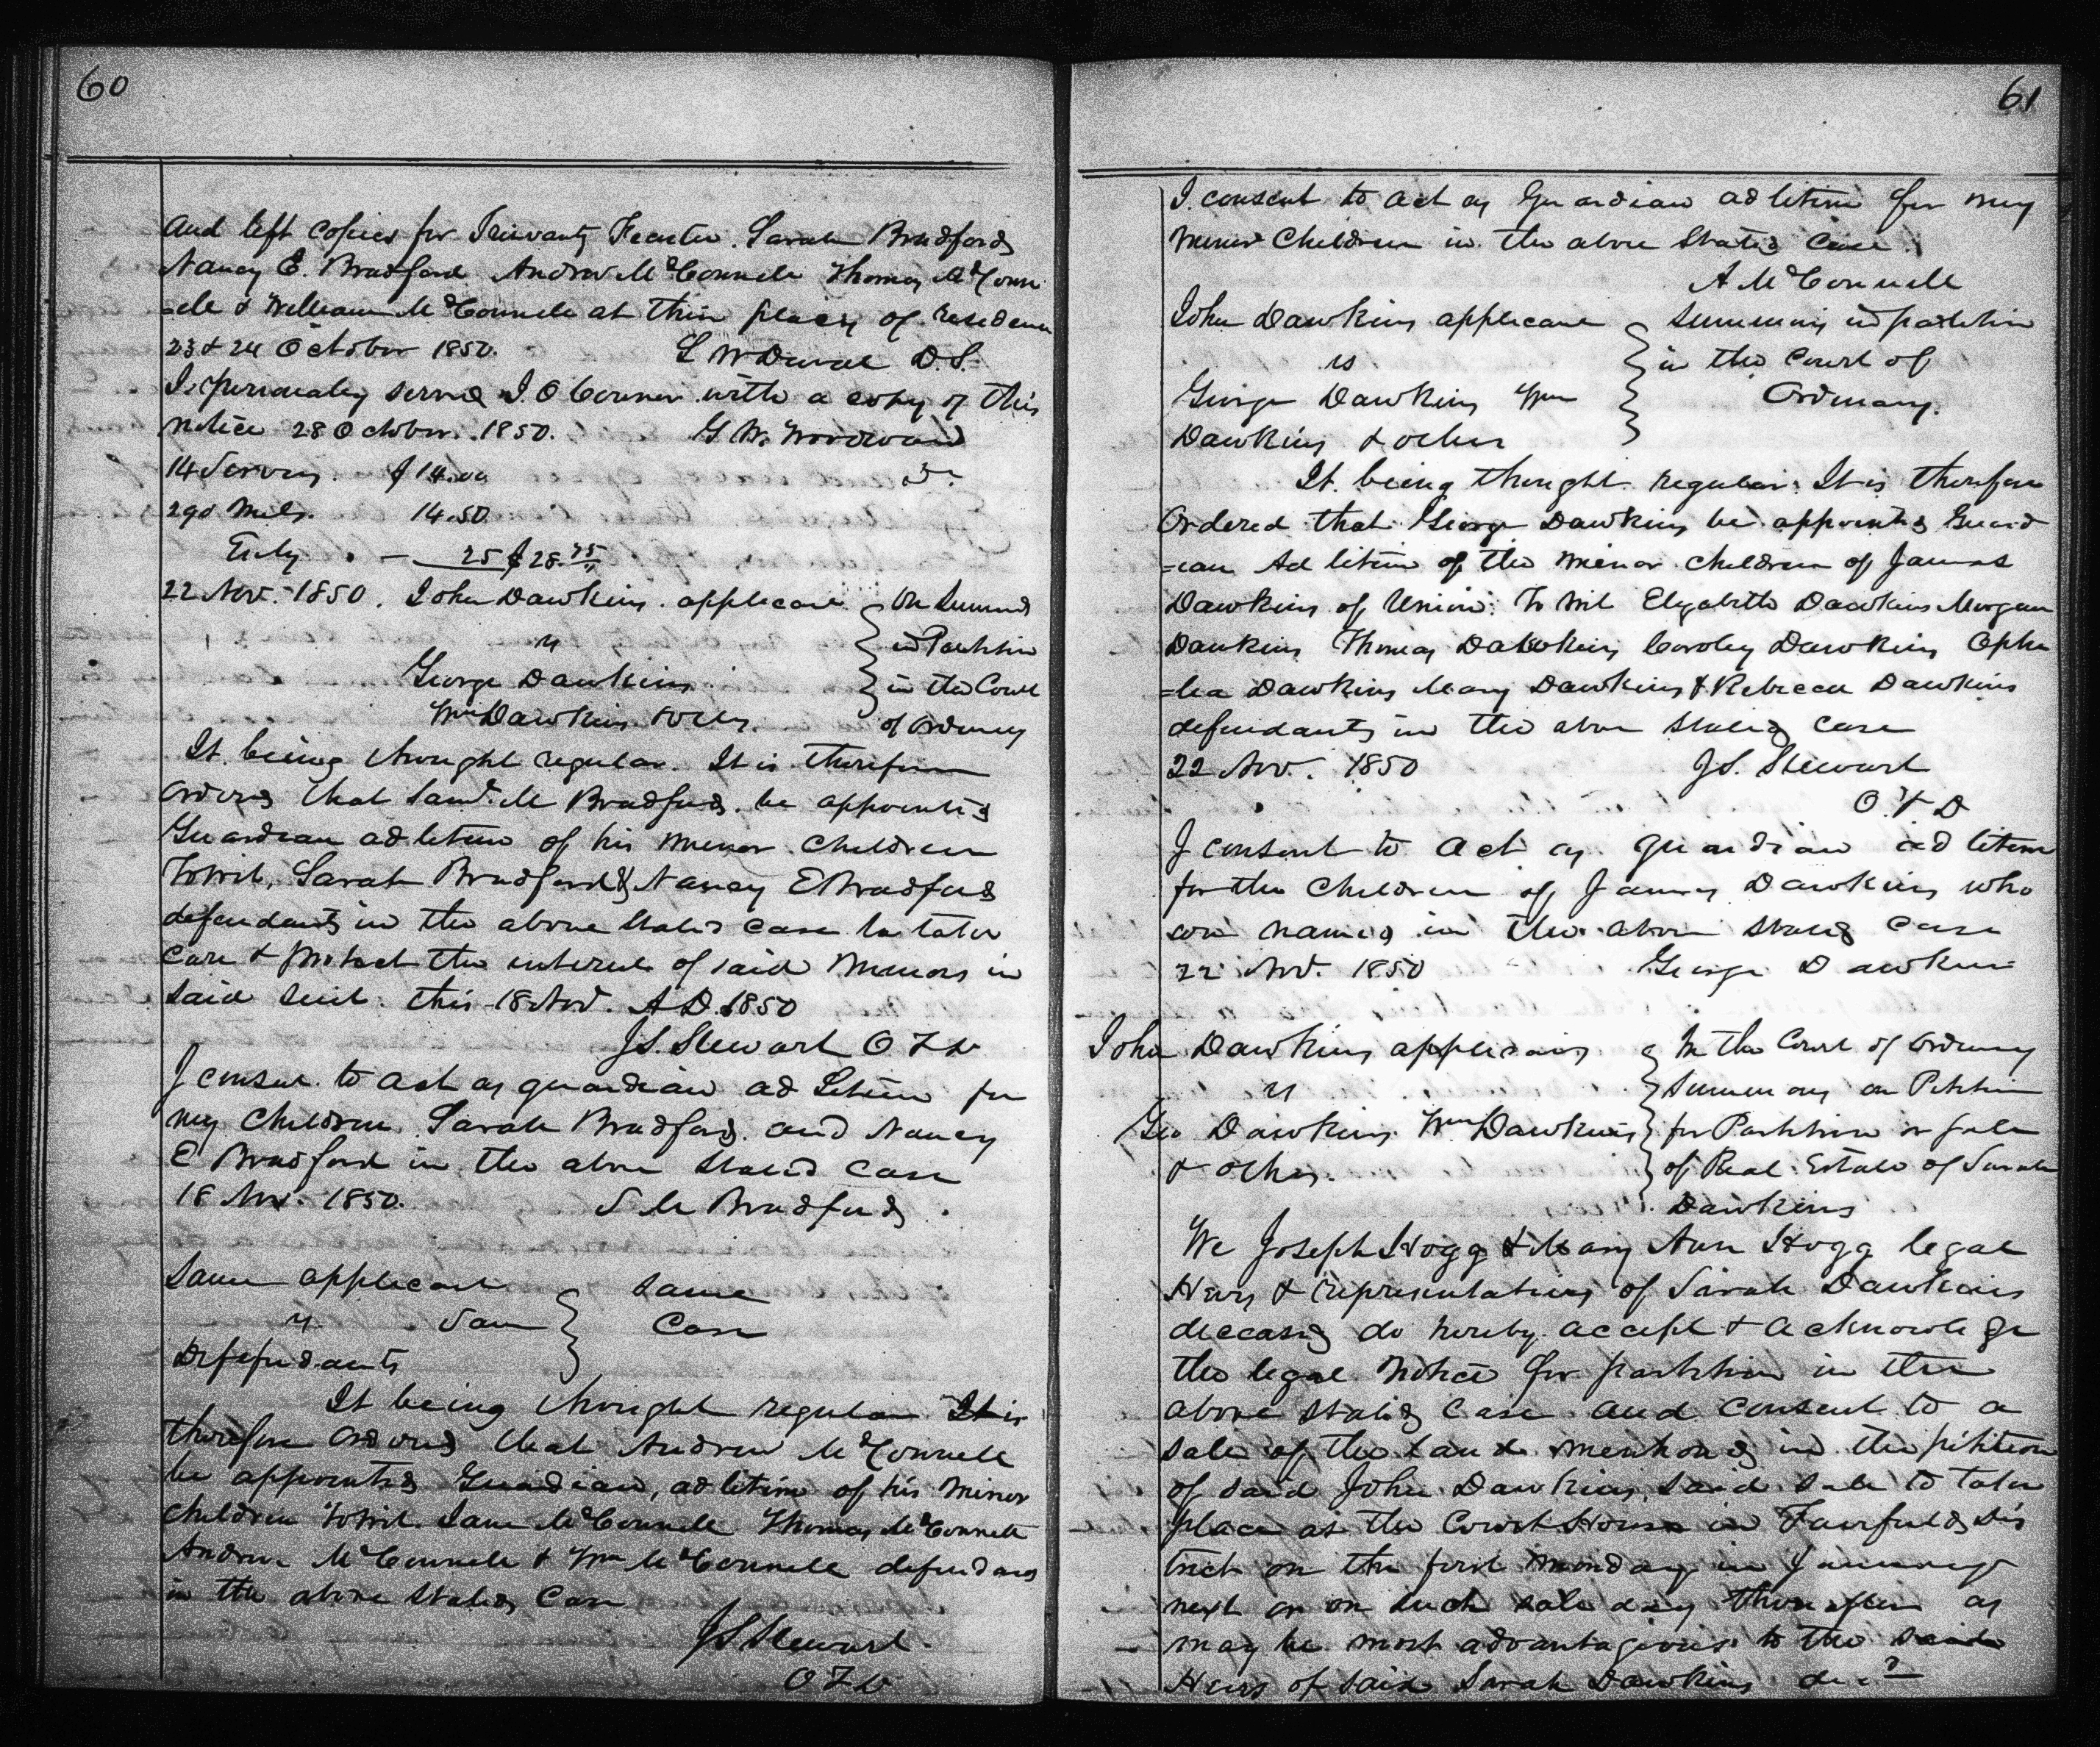 60
And left copies for Trewanty Feaster. Sarah Bradford
Nancy E. Bradford Andrew McConnell Thomas McConn
-ell & William McConnell at their places of residence
23 & 24 October 1850. G W Duval D.S.
I personally served J. O Conner with a copy of this
notice 28 October 1850. G W. Woodward
14 Serves. $14.00
290 Miles. 14.50
Entry . — 25 $28.75
22 Nov. 1850. John Dawkins applicant } On Summons
vs } in Partition
George Dawkins } in the Court
Wm Dawkins & others. of Ordinary
It being thought regular. It is therefore
Ordered that Saml. M Bradford be appointed
Guardian ad litem of his minor children
To wit, Sarah Bradford & Nancy E Bradford
defendants in the above stated case to take
care & protect the interest of said minors in
said suit. this 18 Nov. A D. 1850
J S. Stewart O F D
I consent to act as guardian ad Litem for
my children Sarah Bradford and Nancy
E Bradford in the above stated case
18 Nov. 1850. S M Bradford
Same applicant } Same
vs. Same } Case
Defendants
It being thought regular It is
therefore ordered that Andrew McConnell
be appointed Guardian, ad litem of his minor
children To wit. Jane McConnell Thomas McConnell
Andrew McConnell & Wm McConnell defendants
in the above stated Case
J S Stewart.
O F D
61
I consent to act as Guardian ad litem for my
minor Children in the above stated Case
A McConnell
John Dawkins applicant } Summons in partition
vs } in the Court of
George Dawkins Wm } Ordinary.
Dawkins & others
It being thought regular. It is therefore
Ordered that George Dawkins be appointed Guard
=ian Ad litem of the minor children of James
Dawkins of Union: To wit Elizabeth Dawkins Morgan
Dawkins Thomas Dawkins Dawkins Ophe
=lia Dawkins Mary Dawkins & Rebecca Dawkins
defendants in the above stated Case
22 Nov. 1850 J S. Stewart
O. F D
I consent to act as guardian ad litem
for the Children of James Dawkins who
are named in the above stated Case
22 Nov. 1850 George Dawkins
John Dawkins applicant } In the Court of Ordinary
vs } Summons on Petition
Geo Dawkins Wm Dawkins } for Partition or sale
& others. } of Real Estate of Sarah
Dawkins
We Joseph Hogg & Mary Ann Hogg legal
Heirs & representatives of Sarah Dawkins
deceased do hereby accept & acknowledge
the legal notice for partition in the
above stated case and consent to a
sale of the land mentioned in the petition
of said John Dawkins, said sale to take
place at the Court House in Fairfield Dis
trict on the first monday in January
next or on such sale day thereafter as
may be most advantageous to the said
Heirs of said Sarah Dawkins decd